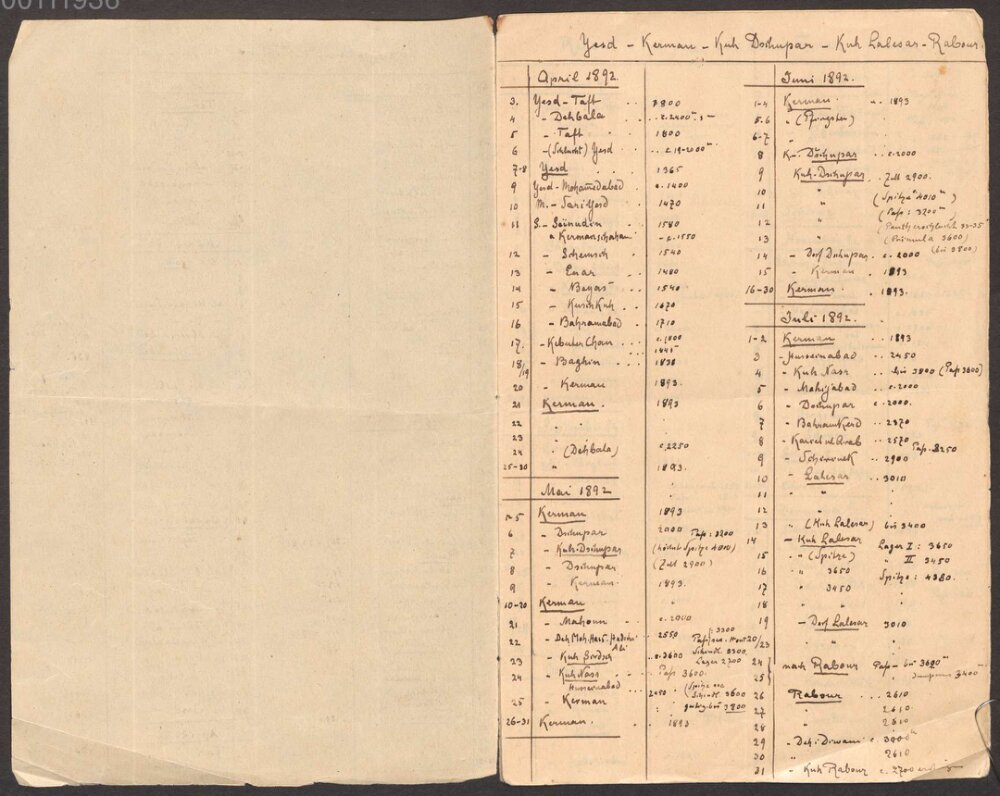 00111936
Yesd - Kerman - Kuh Dschupar - Kuh Lalesar - Rabour.
April 1892.
3. Yesd - Taft . . 1800
4 - Dehbala . . c. 2400
5 - Taft . 1800
6 - (Schlucht) Yesd . . c. 19-2000 m
7-8 Yesd . . . 1365
9 Yesd - Mohamedabad . c. 1400
10 M. - Sari Yesd . 1470
11 S. - Seinudin . . 1580
a Kermanschahan - c. 1550
12 - Schemsch . 1540
13 - Enar . 1480
14 - Bayas . . 1540
15 - Kuschkuh . . 1670
16 - Bahramabad . 1710
17. - Kebuter Chan . . . c. 1800
18/19 - Baghin . . . 1838
20 - Kerman 1893.
21 Kerman . 1893
22 " .
23 "
24 " (Dehbala) c. 2250
25-30 " 1893.
Mai 1892
1-5 Kerman 1893
6 - Dschupar 2000 Paß: 3200
7 - Kuh-Dschupar (höchste Spitze 4010)
8 - Dschupar (Zelt 2900)
9 - Kerman. 1893.
10-20 Kerman
21 - Mahoun . . c. 2000
22 - Deh Moh. 2550 : 3300
23 - Kuh c. 2600 3300
Lager 2700
24 - Kuh Nasr . Paß 3600.
Husseinabad . . 2450 (Spitze 3600
25 - Kerman : 3800
26-31 Kerman. . 1893
Juni 1892.
1-4 Kerman . . 1893
5-6 " (Pfingsten)
6-7 "
8 K. - Dschupar . . c. 2000
9 Kuh-Dschupar . Zelt 2900.
10 " (Spitze 4010 m)
11 " (Paß: 3200 m)
12 " (Pantherschlucht 33-35
13 " (Primula 3600)
(bis 3800)
14 - Dorf Dschupar . c. 2000
15 - Kerman . 1893
16-30 Kerman. . 1893.
Juli 1892.
1-2 Kerman . . 1893
3 - Husseinabad . . 2450
4 - Kuh Nasr . . bis 3800 (Paß 3600)
5 - Mahijabad . . c. 2000
6 - Dschupar c. 2000.
7 - Bahramkerd . . 2370
8 - Karvek ul Arab . . 2570
9 - Schirinek . . 2900 Paß. 3250
10 - Lalesar . . 3010
11 " "
12 " .
13 " (Kuh Lalesar) bis 3400
14 - Kuh Lalesar Lager I: 3650
15 - " (Spitze) " II 3450
16 " 3650 Spitze: 4380.
17 " 3450
18 "
19 - Dorf Lalesar 3010
20/23 " "
24
25 nach Rabour Paß - bis 3600 m
Juniperus 3400 m
26 Rabour . . . 2610
27 " 2610.
28 " 2610
29 - Deh-Diwani c. 3000 m
30 " 2610
31 - Kuh Rabour c. 2700